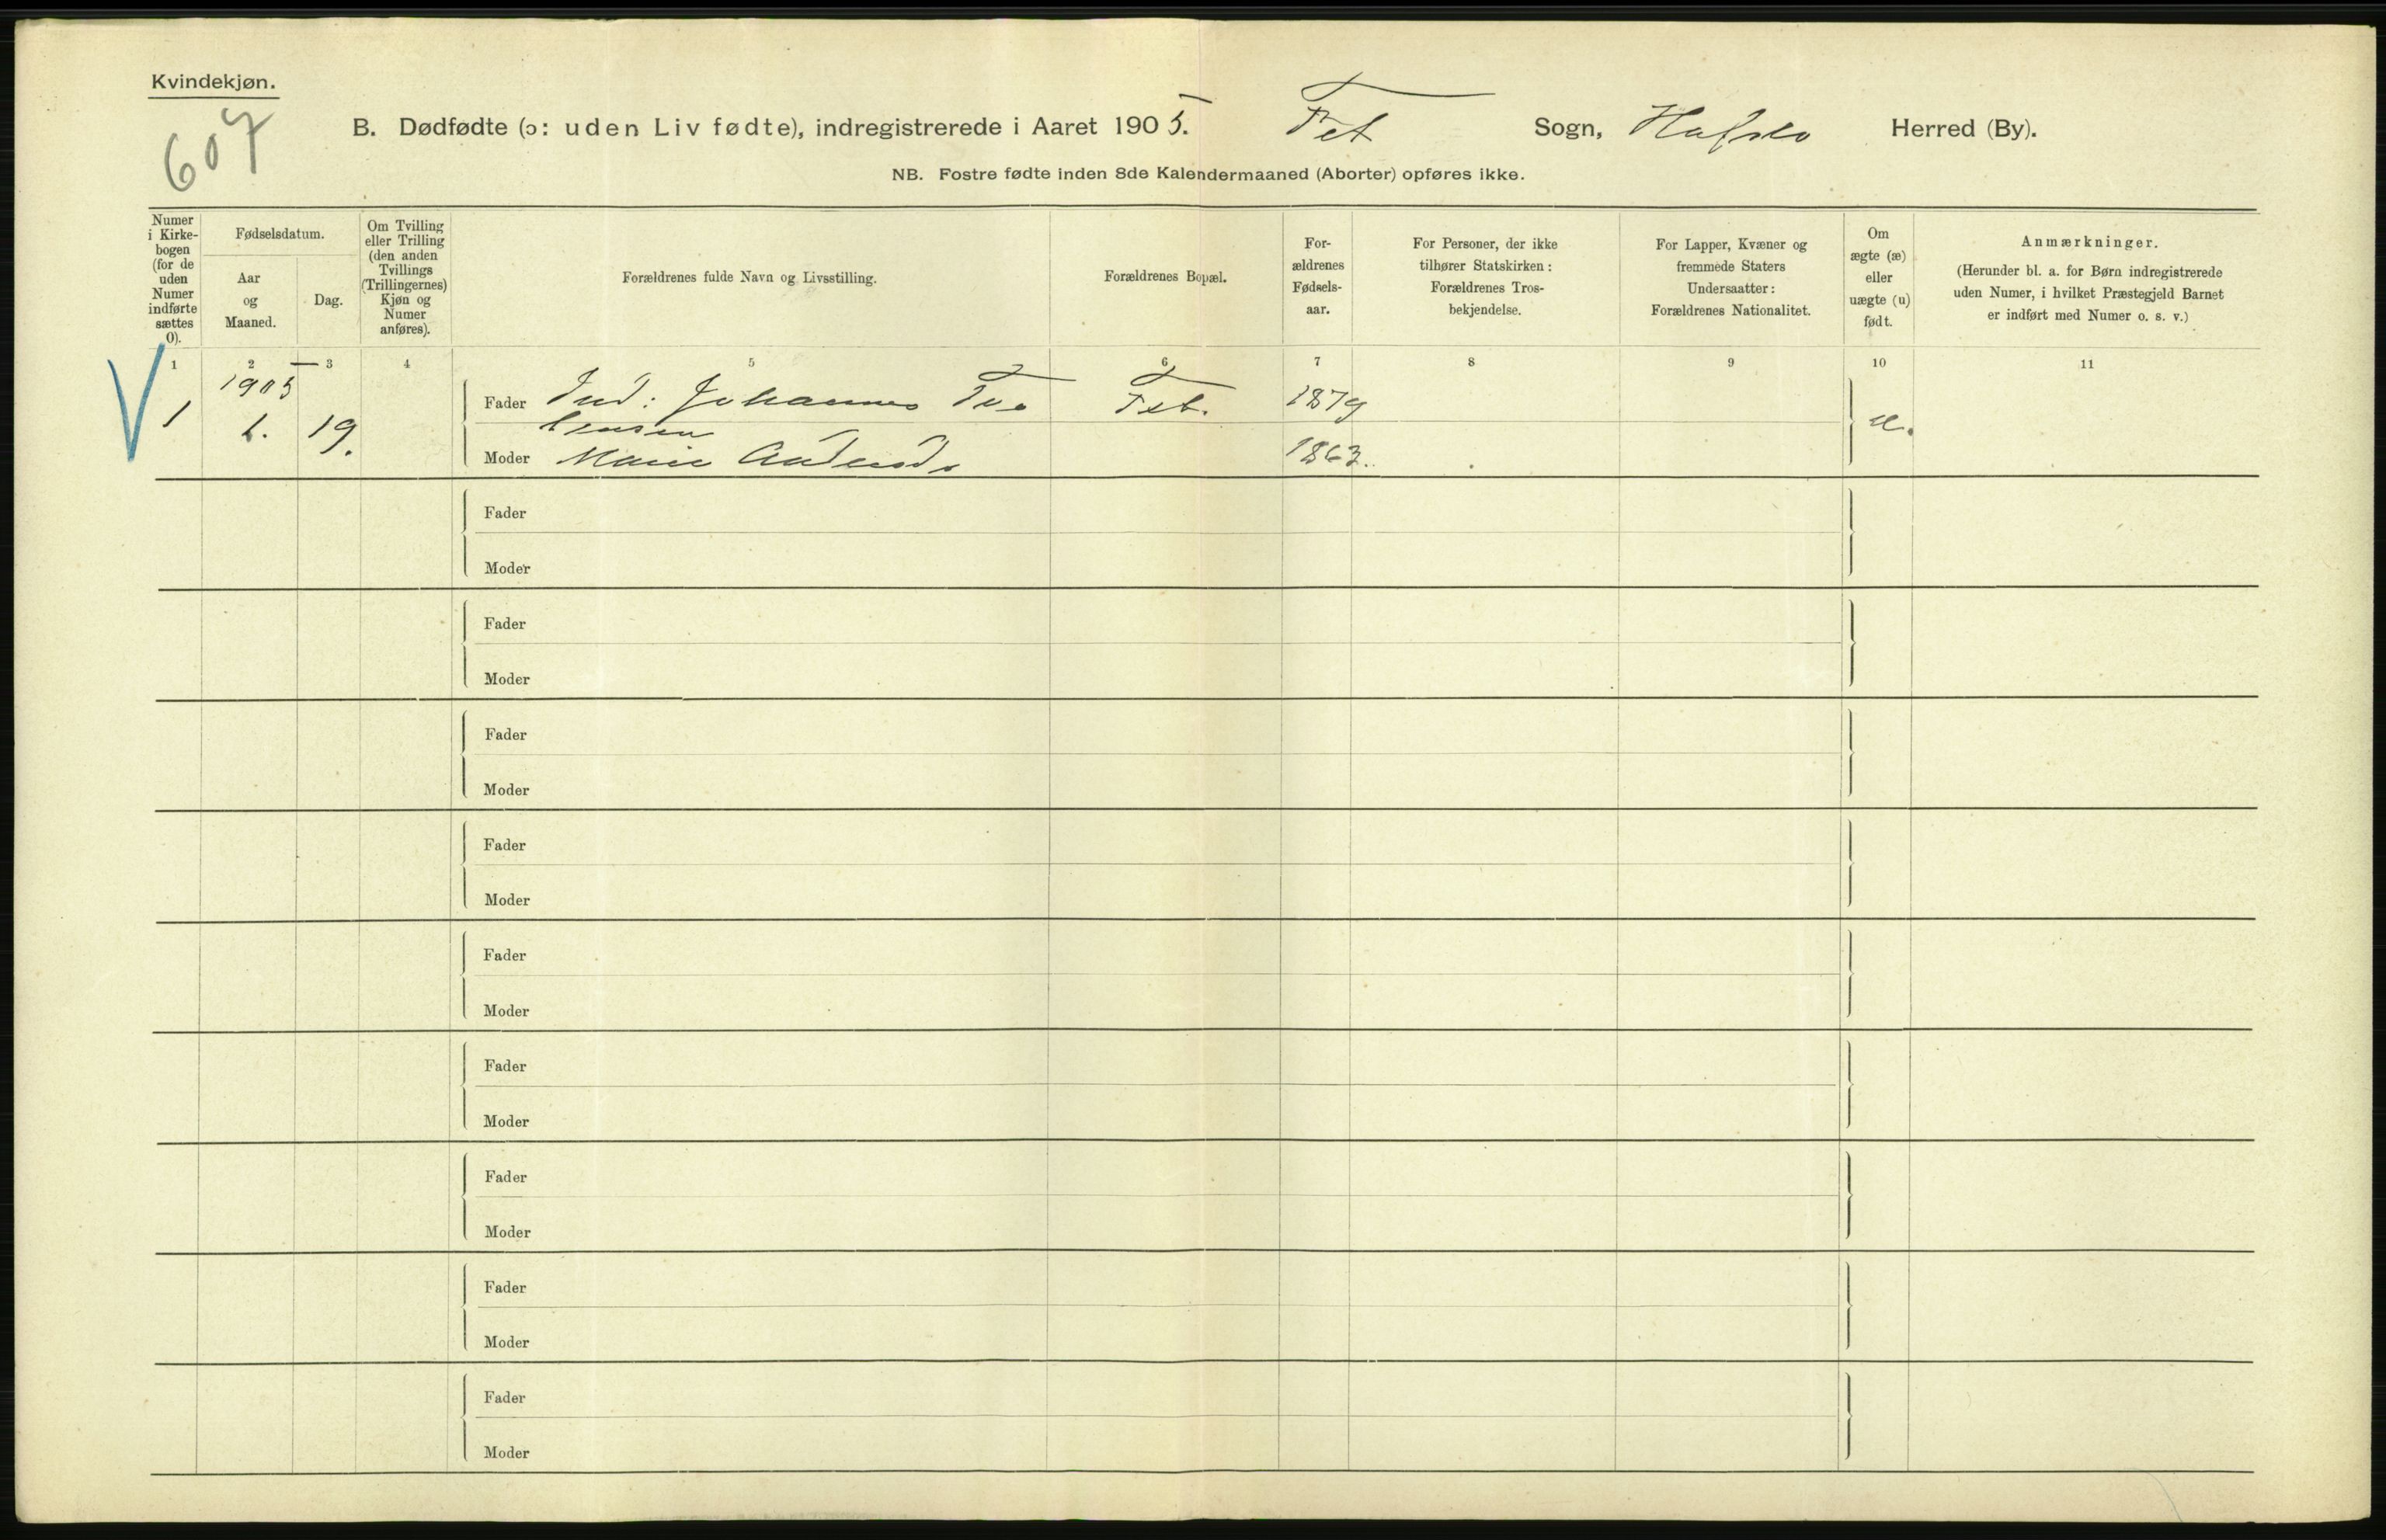 Kvindekjøn.
607
B. Dødfødte (ɔ: uden Liv fødte), indregistrerede i Aaret 1905. Fet Sogn, Hafslo Herred (By).
NB. Fostre fødte inden 8de Kalendermaaned (Aborter) opføres ikke.
Numer i Kirke-bogen (for de uden Numer indførte sættes 0).
Fødselsdatum.
Aar og Maaned.
Dag.
Om Tvilling eller Trilling (den anden Tvillings (Trillingernes) Kjøn og Numer anføres).
Forældrenes fulde Navn og Livsstilling.
Forældrenes Bopæl.
For-ældrenes Fødsels-aar.
For Personer, der ikke tilhører Statskirken: Forældrenes Tros-bekjendelse.
For Lapper, Kvæner og fremmede Staters Undersaatter: Forældrenes Nationalitet.
Om ægte (æ) eller uægte (u) født.
Anmærkninger.
(Herunder bl. a. for Børn indregistrerede uden Numer, i hvilket Præstegjeld Barnet er indført med Numer o. s. v.)
1 2 3 4 5 6 7 8 9 10 11
1905
Fader Ind: Johannes Fet. 1879
1 1. 19.
Moder Marie Andersdr 1863.
Fader
Moder
Fader
Moder
Fader
Moder
Fader
Moder
Fader
Moder
Fader
Moder
Fader
Moder
Fader
Moder
Fader
Moder